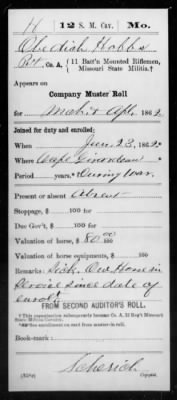 H 12 S. M. Cav. Mo.
Obediah Hobbs
Pvt., Co. A, { 11 Batt'n Mounted Riflemen,
Missouri State Militia.†
Appears on
Company Muster Roll
for Mch & Apl, 1862.
Joined for duty and enrolled:
When Jan 23, 1862.
Where Cape Girardeau
Period years. During war.
Present or absent Absent
Stoppage, $ 100 for
Due Gov't, $ 100 for
Valuation of horse, $ 80.00 100
Valuation of horse equipments, $ 100
Remarks: Sick. Own Horse in
service since date of
enrol't
FROM SECOND AUDITOR'S ROLL.
†This organization subsequently became Co. A, 12 Reg't Missouri
State Militia Cavalry.
*See enrollment on card from muster-in roll.
Book-mark:
Scherich
Copyist.